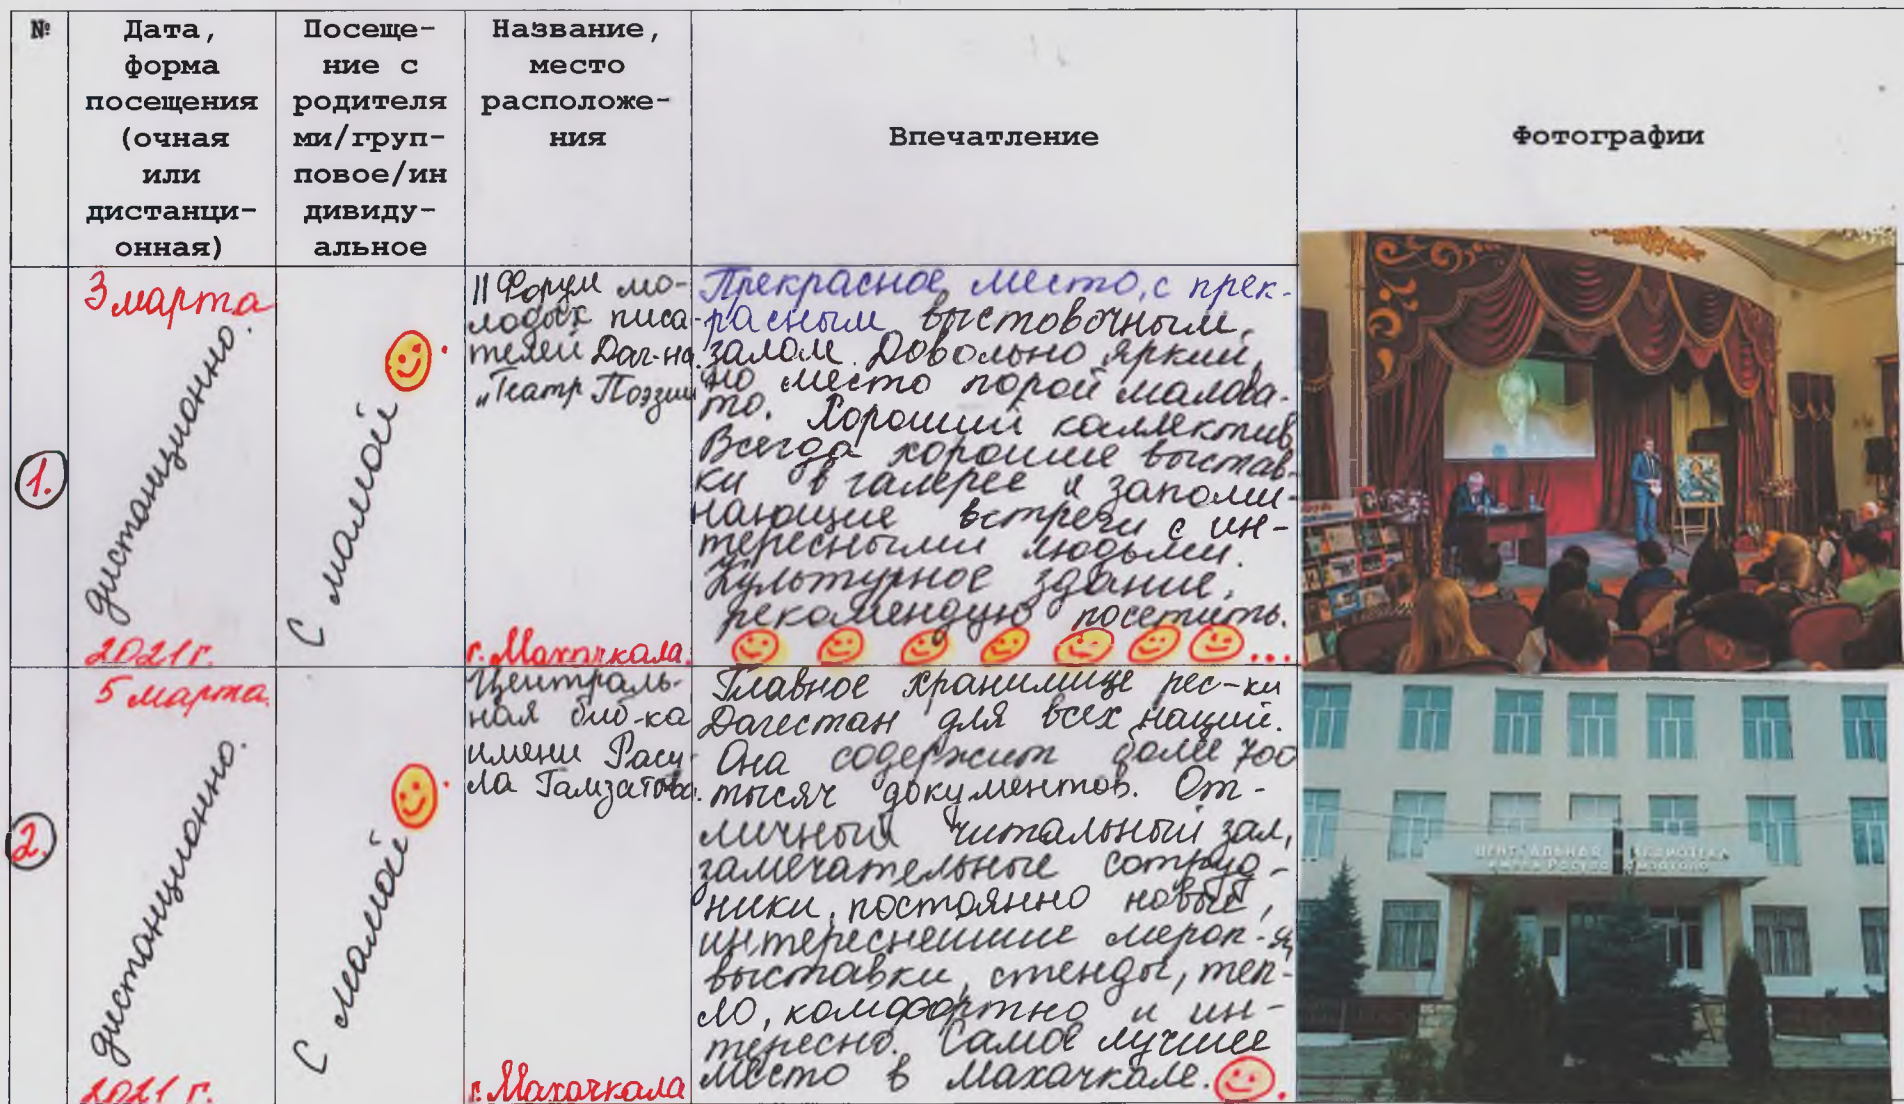 №
Дата,
форма
посещения
(очная
или
дистанци-
онная)
Посеще-
ние с
родителя
ми/груп-
повое/ин
дивиду-
альное
Название,
место
расположе-
ния
Впечатление
Фотографии
1.
3 марта
дистанционно.
2021 г.
С мамой
II Форум мо-
лодых писа-
телей Даг-на
„Театр Поэзии
г. Махачкала.
Прекрасное место, с прек-
расным выстовочным
залом. Довольно яркий,
но место порой малова-
то. Хороший каллектив
Всегда хорошие выстав-
ки в галерее и запоми-
нающие встречи с ин-
тересными людьми.
Культурное здание,
рекомендую посетить.
2.
5 марта.
дистанционно.
2021 г.
С мамой
Централь-
ная биб-ка
имени Расу-
ла Гамзатова.
г. Махачкала
Главное хранилище рес-ки
Дагестан для всех наций.
Она содержит более 700
тысяч документов. От-
личный читальный зал,
замечательные сотруд-
ники, постоянно новые,
интереснейшие мероп-я,
выставки, стенды, теп-
ло, комфортно и ин-
тересно. Самое лучшее
место в Махачкале.
ЦЕНТРАЛЬНАЯ БИБЛИОТЕКА
имени Расула